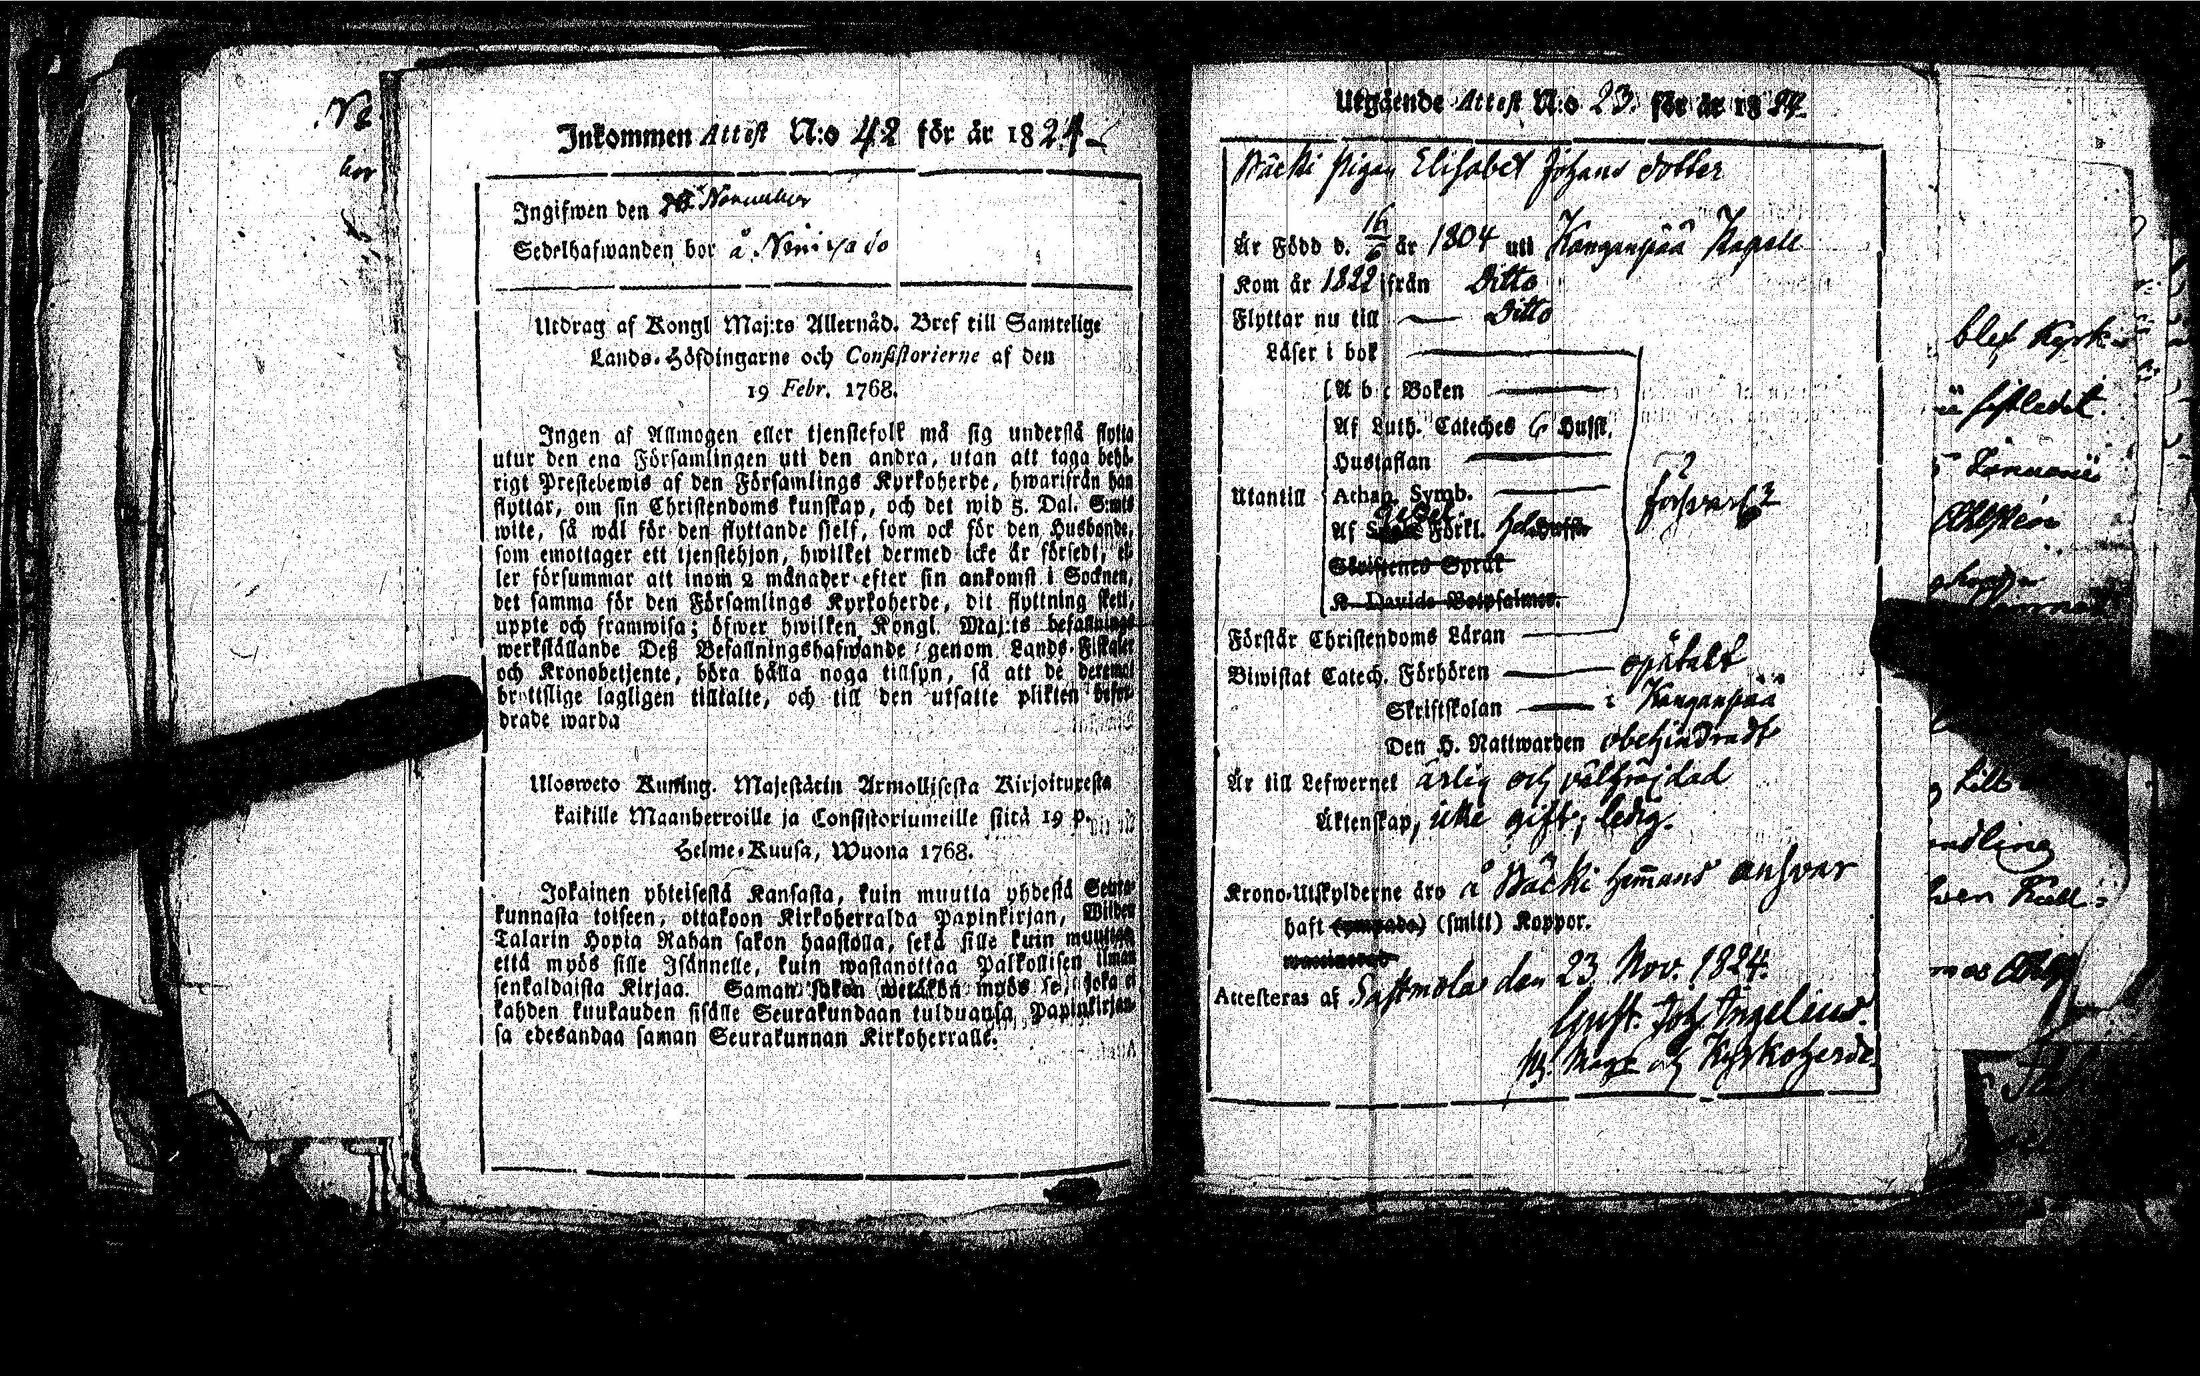 No
bor
Inkommen Attest N:o 42 för år 1824
Ingifwen den November
Sedelhafwanden bor å
Utdrag af Kongl Maj:ts Allernåd. Bref till Samtelige
Lands-Höfdingarne och Consistorierne af den
19 Febr. 1768.
Ingen af Allmogen eller tjenstefolk må sig understå flytta
utur den ena Församlingen uti den andra, utan att taga behö-
rigt Prestebewis af den Församlings Kyrkoherde, hwarifrån han
flyttar, om sin Christendoms kunskap, och det wid 5. Dal. S:mts
wite, så wäl för den flyttande sielf, som ock för den Husbonde,
som emottager ett tjenstehjon, hwilket dermed icke är försedt, el-
ler försummar att inom 2 månader efter sin ankomst i Socknen,
det samma för den Församlings Kyrkoherde, dit flyttning skett,
uppte och framwisa; öfwer hwilken Kongl. Maj:ts befallnings
werkställande Deß Befallningshafwande genom Lands-Fiskaler
och Kronobetjente, böra hålla noga tillsyn, så att de deremot
brottslige lagligen tilltalte, och till den utsatte plikten befor-
drade warda
Ulosweto Kuning. Majestätin Armollisesta Kirjoituresta
kaikille Maanherroille ja Consistoriumeille siitä 19 p.
Helme-Kuusa, Wuona 1768.
Jokainen yhteisestä Kansasta, kuin muutta yhdestä Seura-
kunnasta toiseen, ottakoon Kirkoherralda Papinkirjan, Wiiden
Talarin Hopia Rahan sakon haastolla, sekä sille kuin muuttaa
että myös sille Isännelle, kuin wastanottaa Palkollisen ilman
senkaldaista Kirjaa. Saman sakon wetäkön myös se, joka ei
kahden kuukauden sisälle Seurakundaan tulduansa, Papinkirjan-
sa edesandaa saman Seurakunnan Kirkoherralle.
Utgående Attest N:o 23. för år 1824.
Bäcki pigan Elisabet Johans dotter
Är Född d. 16/6 år 1804 uti Kanganpää Kapell
Kom år 1822 från Ditto
Flyttar nu till Ditto
Läser i bok
A b c Boken
Af Luth. Cateches 6 Hufst.
Hustaflan
Utantill Athan. Symb. försvarl:t
Af Förkl.
Skriftenes Språk
K. Davids Botpsalmer.
Förstår Christendoms Läran
Biwistat Catech. Förhören
Skriftskolan i Kanganpää
Den H. Nattwarden obehindradt
Är till Lefwernet ärlig och välfräjdad
Äktenskap, icke gift; ledig.
Krono-Utskylderne äro å Bäcki hemmans ansvar
haft (ympade) (smitt) Koppor.
Attesteras af Sastmola den 23 Nov. 1824.
Gust. Joh. Ingelius.
och Kyrkoherde
blef